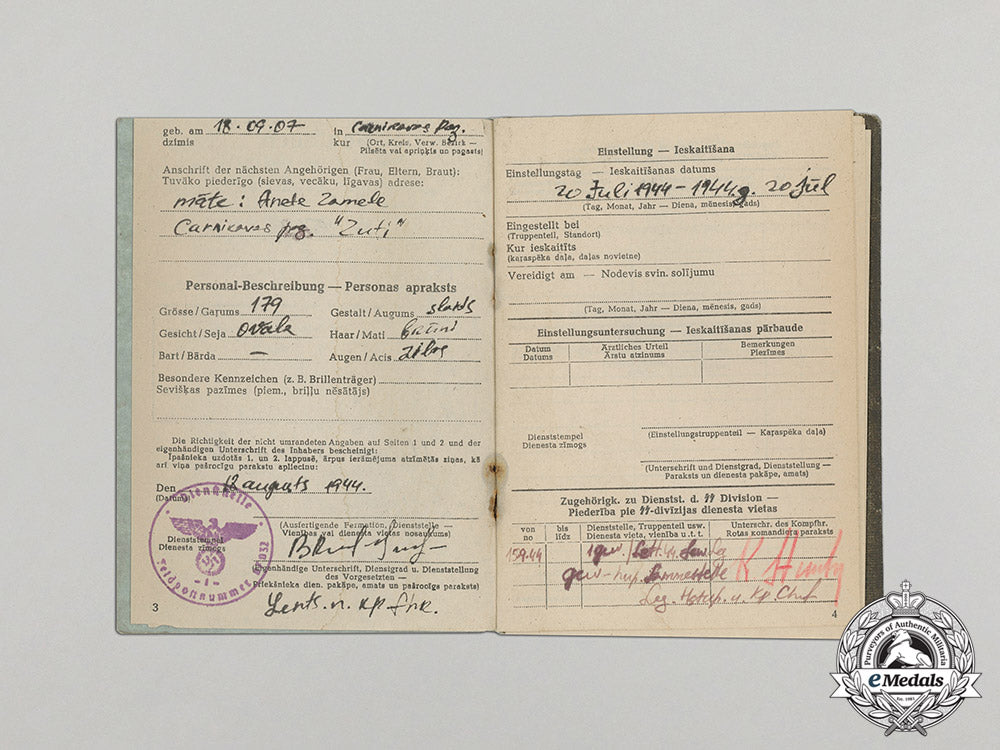 geb. am 18.09.07 in Carnicavas pag.
dzimis kur (Ort, Kreis, Verw. Bezirk —
Pilsēta vai apriņķis un pagasts)
Anschrift der nächsten Angehörigen (Frau, Eltern, Braut):
Tuvāko piederīgo (sievas, vecāku, līgavas) adrese:
māte: Anete Zamele
Carnicavas pag. "Zuti"
Personal-Beschreibung — Personas apraksts
Grösse/Gaŗums 179 Gestalt/Augums slaids
Gesicht/Seja ovāla Haar/Mati brūni
Bart/Bārda — Augen/Acis zilas
Besondere Kennzeichen (z. B. Brillenträger)
Sevišķas pazīmes (piem., briļļu nēsātājs)
Die Richtigkeit der nicht umrandeten Angaben auf Seiten 1 und 2 und der
eigenhändigen Unterschrift des Inhabers bescheinigt:
Īpašnieka uzdotās 1. un 2. lappusē, ārpus ierāmējuma atzīmētās ziņas, kā
arī viņa pašrocīgu parakstu apliecinu:
Den 12 augusts 1944.
(Datums)
(Ausfertigende Formation, Dienststelle —
Vienības vai dienesta vietas nosaukums)
Dienststempel
Dienesta zīmogs
Dienststelle
Feldpostnummer
- 1 -
(Eigenhändige Unterschrift, Dienstgrad u. Dienststellung
des Vorgesetzten —
Priekšnieka dien. pakāpe, amats un pašrocīgs paraksts)
3
Einstellung — Ieskaitīšana
Einstellungstag — Ieskaitīšanas datums
20 Juli 1944 — 1944.g. 20 jūl
(Tag, Monat, Jahr — Diena, mēnesis, gads)
Eingestellt bei
(Truppenteil, Standort)
Kur ieskaitīts
(karaspēka daļa, daļas novietne)
Vereidigt am — Nodevis svin. solījumu
(Tag, Monat, Jahr — Diena, mēnesis, gads)
Einstellungsuntersuchung — Ieskaitīšanas pārbaude
Datum Ärztliches Urteil Bemerkungen
Datums Ārstu atzinums Piezīmes
Dienststempel
Dienesta zīmogs
(Einstellungstruppenteil — Kaŗaspēka daļa)
(Unterschrift und Dienstgrad, Dienststellung —
Paraksts un dienesta pakāpe, amats)
Zugehörigk. zu Dienstst. d. SS Division —
Piederība pie SS-divīzijas dienesta vietas
von bis Dienststelle, Truppenteil usw. Unterschr. des Kompfhr.
no līdz Dienesta vieta, vienība u. t. t. Rotas komandieŗa paraksts
15.9.44
4
Purveyors of Authentic Militaria
eMedals
Est. 1981